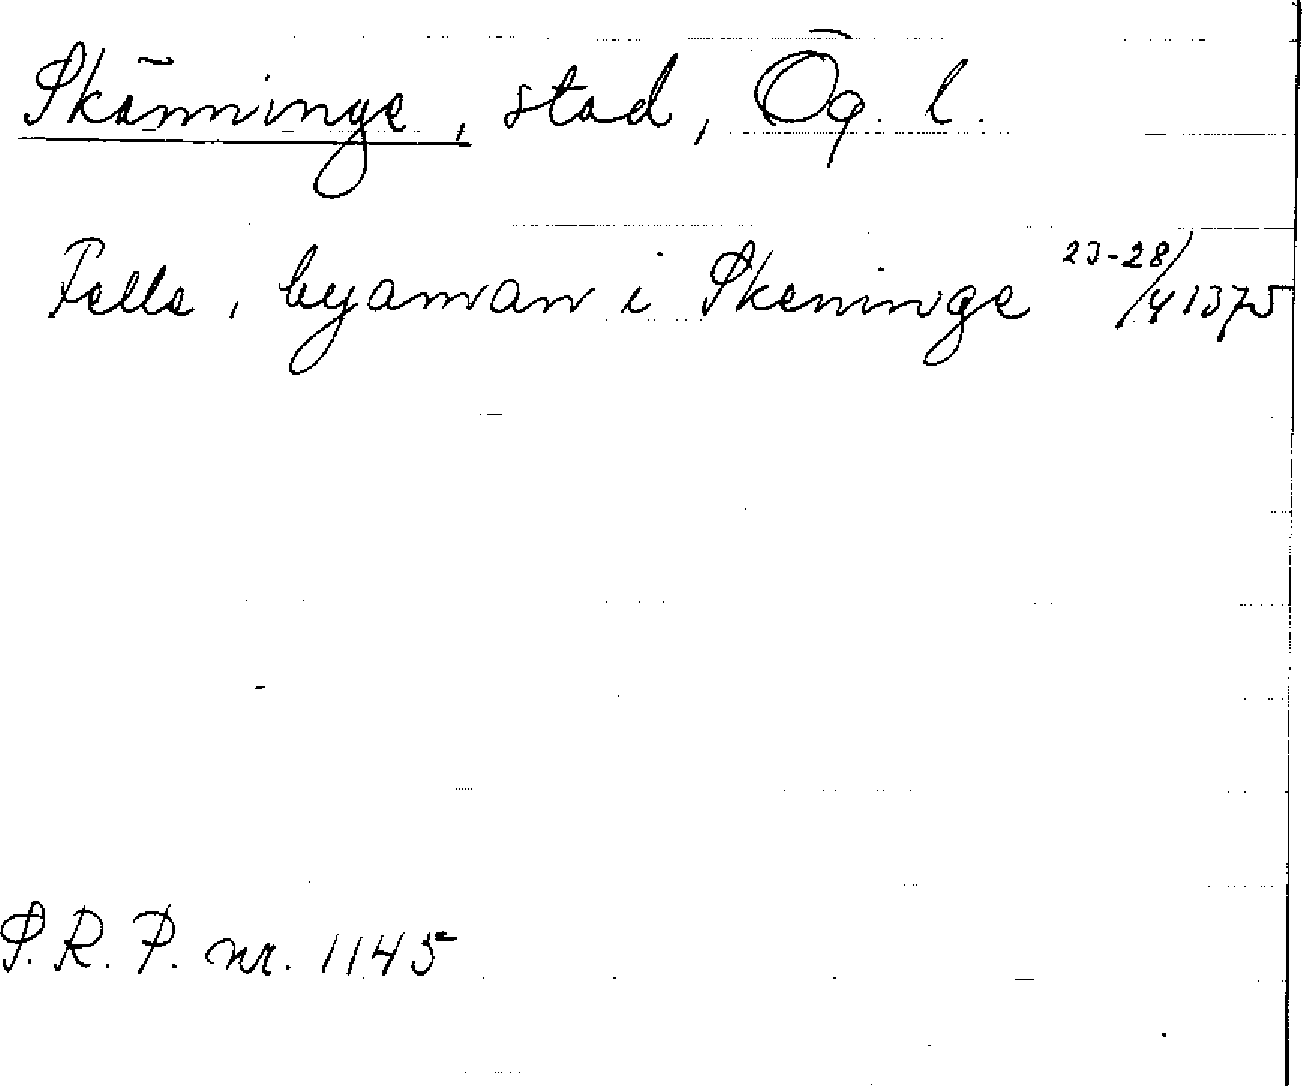 Skänninge, stad, Ög. l.
Felle, byaman i Skeninge 23-28/4 1375
S.R.P. nr. 1145